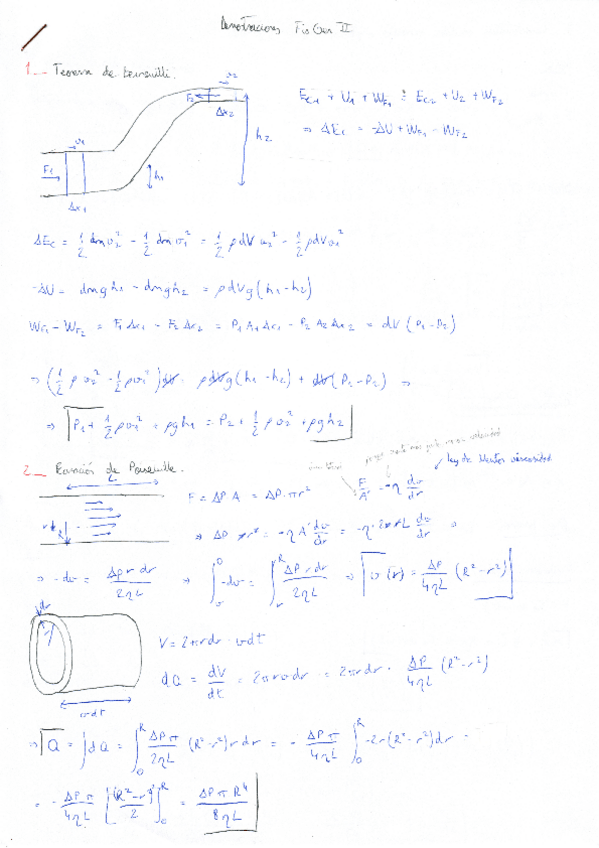 Demostraciones Fis Gen II
1_ Teorema de Bernouilli.
v2
F2
Δx2
h2
v1
F1
h1
Δx1
Ec1 + U1 + WF1 = Ec2 + U2 + WF2
⇒ ΔEc = -ΔU + WF1 - WF2
ΔEc = 1/2 dm v2² - 1/2 dm v1² = 1/2 ρ dV v2² - 1/2 ρ dV v1²
-ΔU = dm g h1 - dm g h2 = ρ dV g (h1 - h2)
WF1 - WF2 = F1 Δx1 - F2 Δx2 = P1 A1 Δx1 - P2 A2 Δx2 = dV (P1 - P2)
⇒ (1/2 ρ v2² - 1/2 ρ v1²) dV = ρ dV g (h1 - h2) + dV (P1 - P2) ⇒
⇒ P1 + 1/2 ρ v1² + ρ g h1 = P2 + 1/2 ρ v2² + ρ g h2
2_ Ecuación de Poiseuille.
L
F = ΔP A = ΔP · π r²
F/A' = -η dv/dr
ley de Newton viscosidad
⇒ ΔP π r² = -η A' dv/dr = -η · 2π r L dv/dr ⇒
⇒ -dv = ΔP r dr / 2ηL ⇒ ∫ᵥ⁰ -dv = ∫ᵣᴿ ΔP r dr / 2ηL ⇒ v(r) = ΔP / 4ηL (R² - r²)
dr
r
v dt
V = 2π r dr · v dt
dQ = dV/dt = 2π r v dr = 2π r dr · ΔP / 4ηL (R² - r²)
⇒ Q = ∫ dQ = ∫₀ᴿ ΔP π / 2ηL (R² - r²) r dr = - ΔP π / 4ηL ∫₀ᴿ -2r (R² - r²) dr =
= - ΔP π / 4ηL [(R² - r²)² / 2]₀ᴿ = ΔP π R⁴ / 8ηL